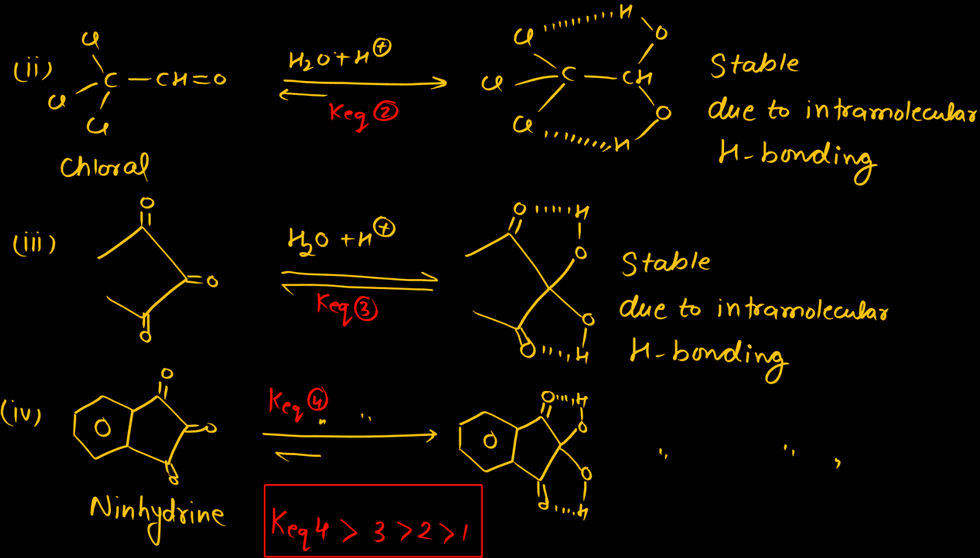 (ii) Cl Cl Cl C — CH=O
Chloral
H₂O + H⊕
Keq ②
Cl Cl Cl C — CH O H O H
Stable
due to intramolecular
H-bonding
(iii) O O O
H₂O + H⊕
Keq ③
O H O O H O
Stable
due to intramolecular
H-bonding
(iv) O O O O
Ninhydrine
Keq ④
" "
O O H O O H O
" " ,
Keq 4 > 3 > 2 > 1